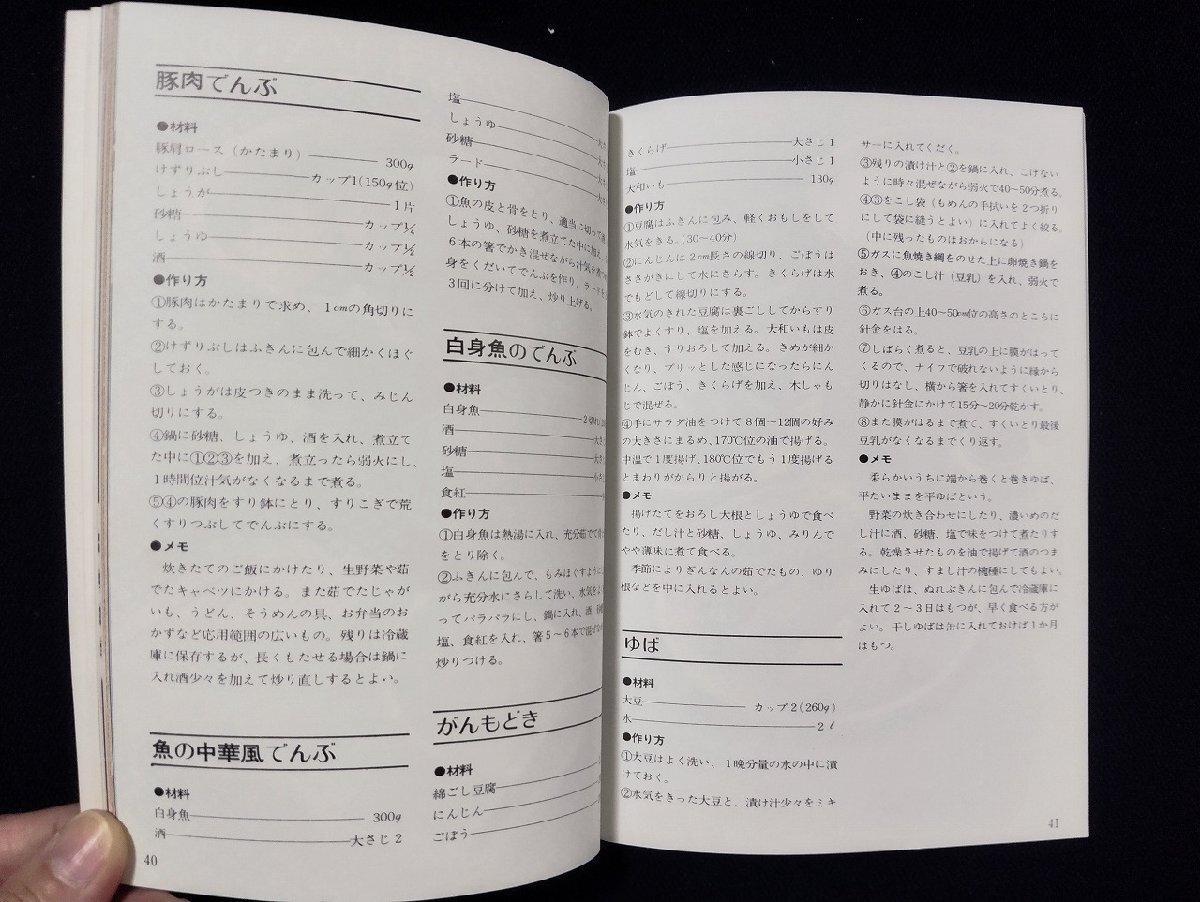 豚肉でんぶ
●材料
豚肩ロース(かたまり) 300g
けずりぶし カップ1(150g位)
しょうが 1片
砂糖 カップ
しょうゆ カップ
酒 カップ
●作り方
①豚肉はかたまりで求め、1cmの角切りに
する。
②けずりぶしはふきんに包んで細かくほぐ
しておく。
③しょうがは皮つきのまま洗って、みじん
切りにする。
④鍋に砂糖、しょうゆ、酒を入れ、煮立て
た中に①②③を加え、煮立ったら弱火にし、
1時間位汁気がなくなるまで煮る。
⑤④の豚肉をすり鉢にとり、すりこぎで荒
くすりつぶしてでんぶにする。
●メモ
炊きたてのご飯にかけたり、生野菜や茹
でたキャベツにかける。また茹でたじゃが
いも、うどん、そうめんの具、お弁当のお
かずなど応用範囲の広いもの。残りは冷蔵
庫に保存するが、長くもたせる場合は鍋に
入れ酒少々を加えて炒り直しするとよい。
魚の中華風でんぶ
●材料
白身魚 300g
酒 大さじ2
40
塩
しょうゆ 大さ
砂糖 大さ
ラード 大さ
●作り方
①魚の皮と骨をとり、適当に切って酒
しょうゆ、砂糖を煮立てた中に加え、
6本の箸でかき混ぜながら汁気を煮つ
身をくだいてでんぶを作り、ラードを
3回に分けて加え、炒り上げる。
白身魚のでんぶ
●材料
白身魚 2切れ
酒 大さ
砂糖 大さ
塩 小さ
食紅
●作り方
①白身魚は熱湯に入れ、充分茹でて
をとり除く。
②ふきんに包んで、もみほぐすように
がら充分水にさらして洗い、水気を
ってバラバラにし、鍋に入れ、酒
塩、食紅を入れ、箸5~6本で混ぜ
炒りつける。
がんもどき
●材料
綿ごし豆腐
にんじん
ごぼう
きくらげ 大さじ1
塩 小さじ1
大和いも 130g
●作り方
①豆腐はふきんに包み、軽くおもしをして
水気をきる。(30~40分)
②にんじんは2cm長さの線切り、ごぼうは
ささがきにして水にさらす。きくらげは水
でもどして線切りにする。
③水気のきれた豆腐に裏ごししてからすり
鉢でよくすり、塩を加える。大和いもは皮
をむき、すりおろして加える。きめが細か
くなり、プリッとした感じになったらにん
じん、ごぼう、きくらげを加え、木しゃも
じで混ぜる。
④手にサラダ油をつけて8個~12個の好み
の大きさにまるめ、170℃位の油で揚げる。
中温で1度揚げ、180℃位でもう1度揚げる
とまわりがからりと揚がる。
●メモ
揚げたてをおろし大根としょうゆで食べ
たり、だし汁と砂糖、しょうゆ、みりんで
やや薄味に煮て食べる。
季節によりぎんなんの茹でたもの、ゆり
根などを中に入れるとよい。
ゆば
●材料
大豆 カップ2(260g)
水 2ℓ
●作り方
①大豆はよく洗い、1晩分量の水の中に漬
けておく。
②水気をきった大豆と、漬け汁少々をミキ
サーに入れてくだく。
③残りの漬け汁と②を鍋に入れ、こげない
ように時々混ぜながら弱火で40~50分煮る。
④③をこし袋(もめんの手拭いを2つ折り
にして袋に縫うとよい)に入れてよく絞る。
(中に残ったものはおからになる)
⑤ガスに魚焼き網をのせた上に卵焼き鍋を
おき、④のこし汁(豆乳)を入れ、弱火で
煮る。
⑥ガス台の上40~50cm位の高さのところに
針金をはる。
⑦しばらく煮ると、豆乳の上に膜がはって
くるので、ナイフで破れないように縁から
切りはなし、横から箸を入れてすくいとり、
静かに針金にかけて15分~20分乾かす。
⑧また膜がはるまで煮て、すくいとり最後
豆乳がなくなるまでくり返す。
●メモ
柔らかいうちに端から巻くと巻きゆば、
平たいままを平ゆばという。
野菜の炊き合わせにしたり、濃いめのだ
し汁に酒、砂糖、塩で味をつけて煮たりす
る。乾燥させたものを油で揚げて酒のつま
みにしたり、すまし汁の椀種にしてもよい。
生ゆばは、ぬれぶきんに包んで冷蔵庫に
入れて2~3日はもつが、早く食べる方が
よい。干しゆばは缶に入れておけば1か月
はもつ。
41